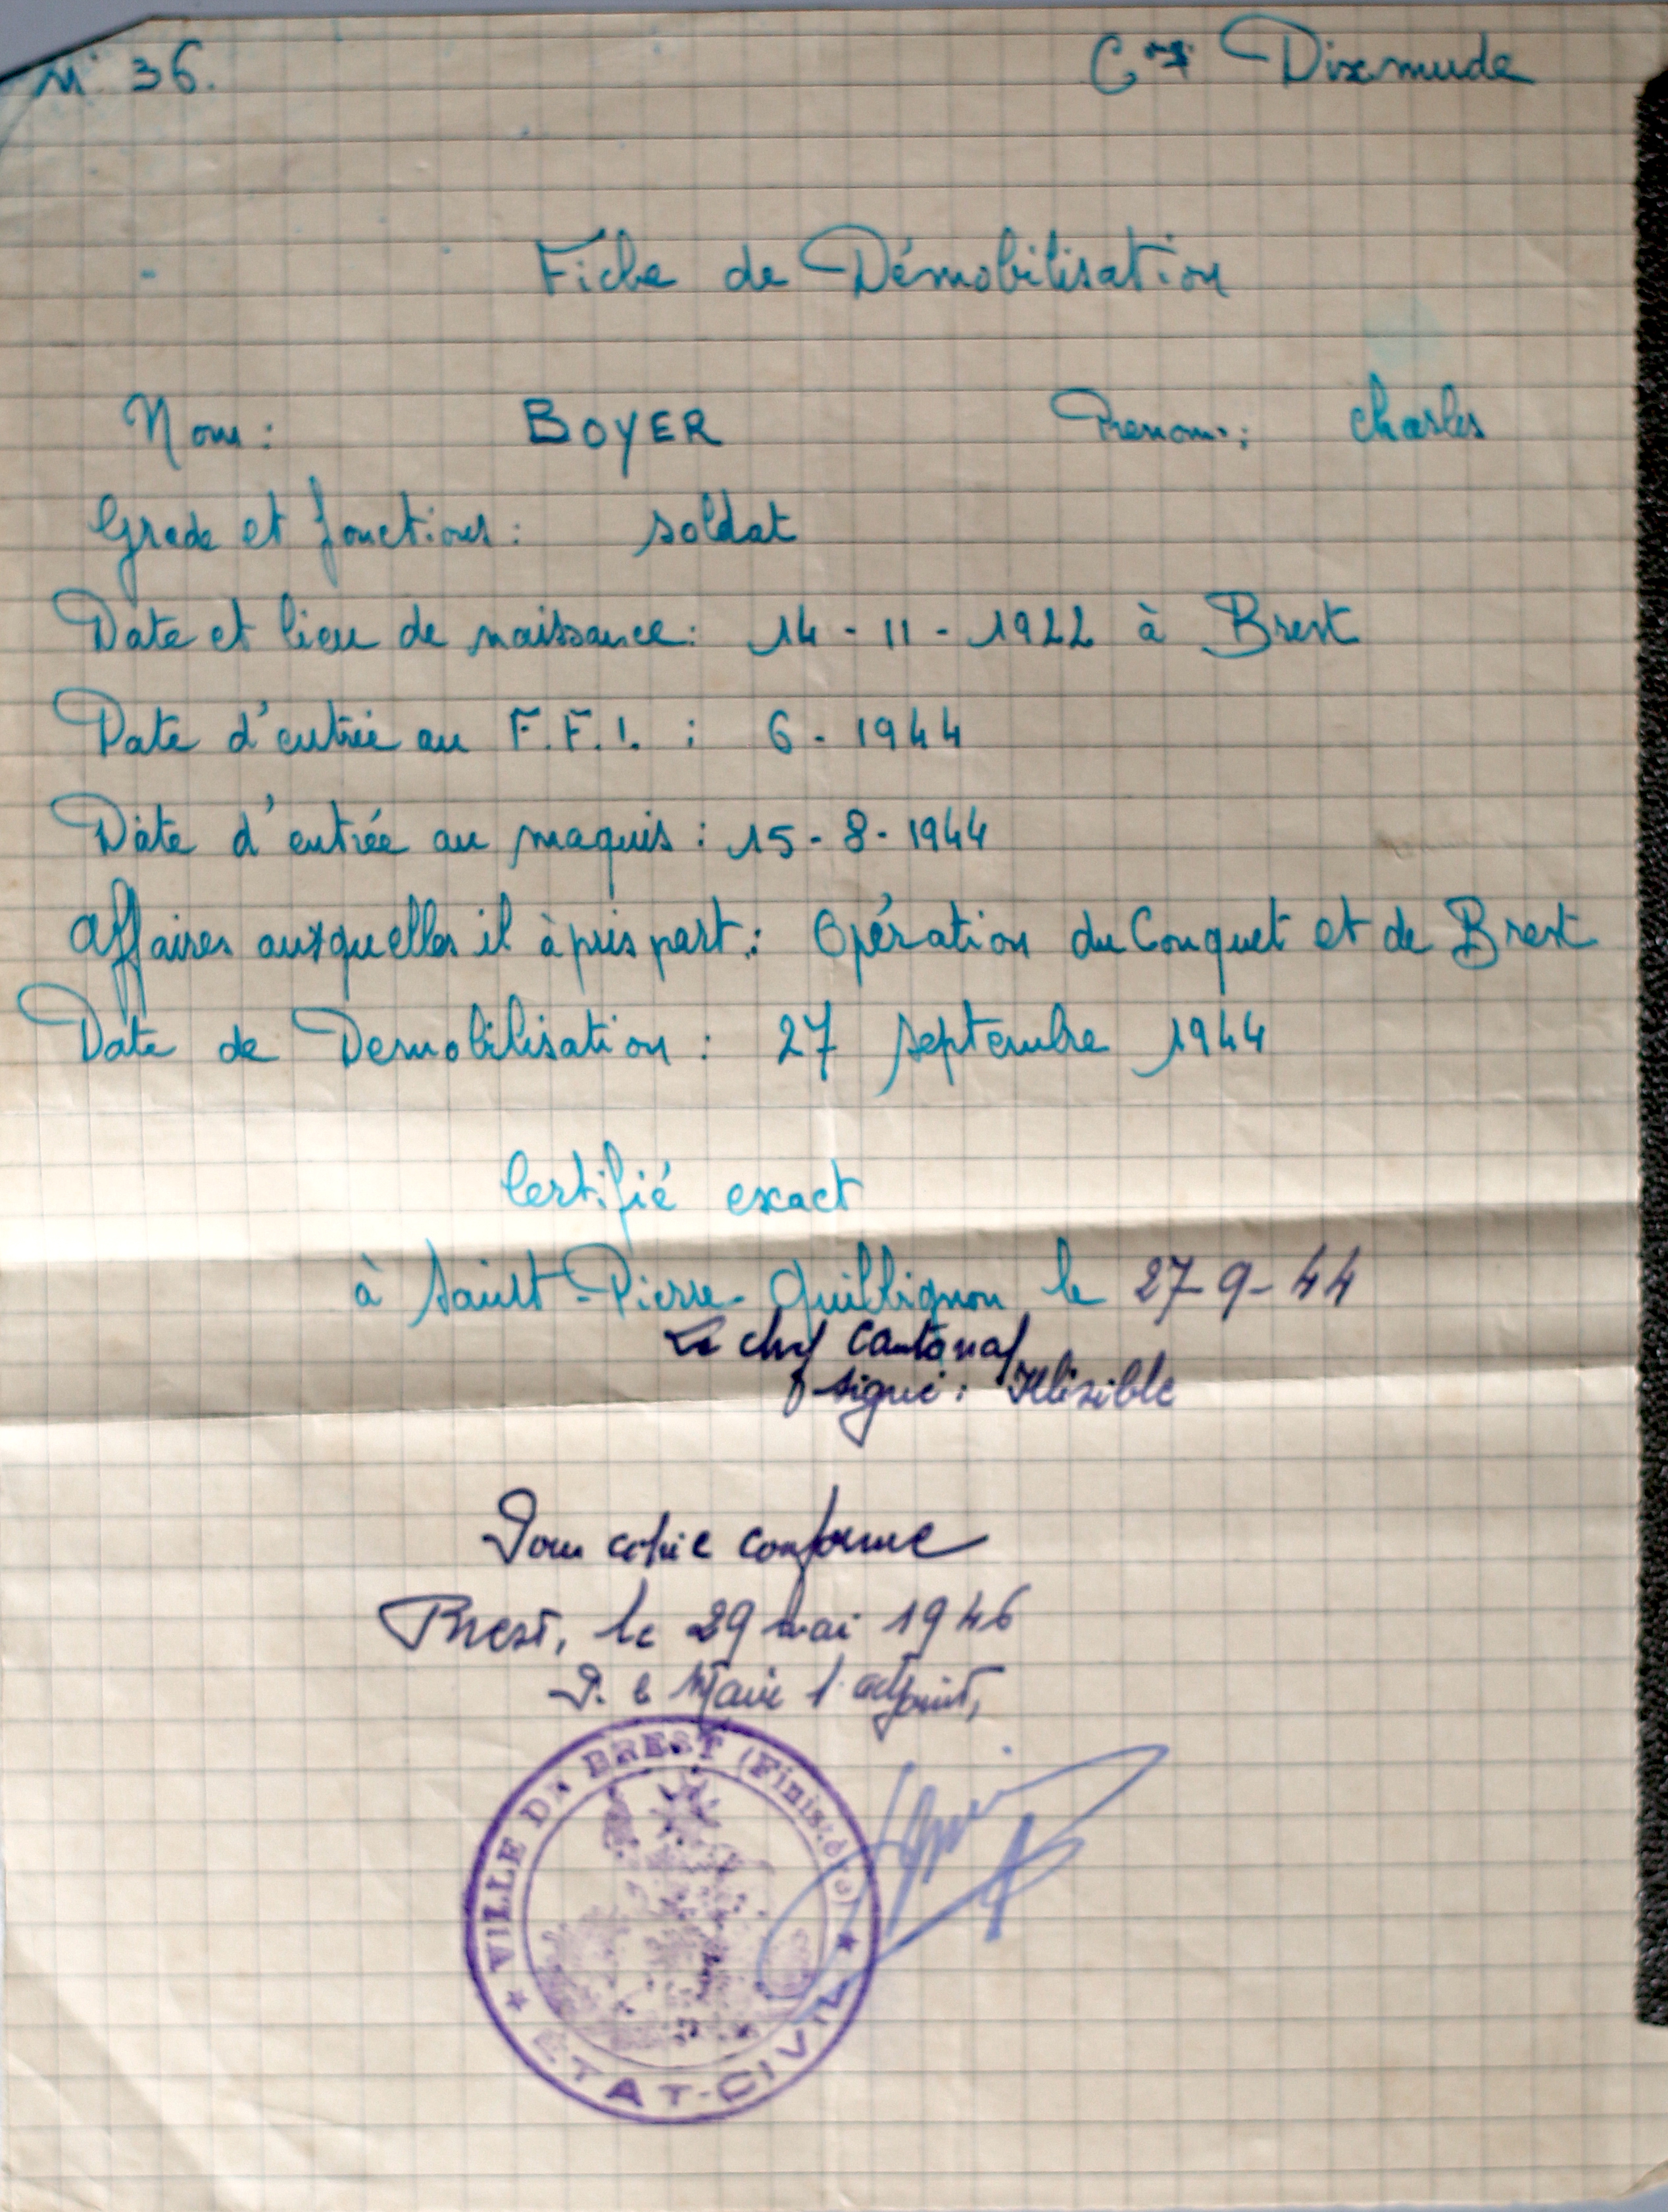 N° 36. Cie Dixmude
Fiche de Démobilisation
Nom : BOYER Prenom : Charles
Grade et fonctions : soldat
Date et lieu de naissance : 14 - 11 - 1922 à Brest
Date d'entrée au F.F.I. : 6 - 1944
Date d'entrée au maquis : 15 - 8 - 1944
Affaires auxquelles il à pris part : Opération du Conquet et de Brest
Date de Demobilisation : 27 septembre 1944
Certifié exact
à Saint-Pierre-Quilbignon le 27-9-44
Le chef Cantonal
signé : Illisible
Pour copie conforme
Brest, le 29 mai 1946
P. le Maire l'adjoint,
VILLE DE BREST (Finistère)
ÉTAT-CIVIL